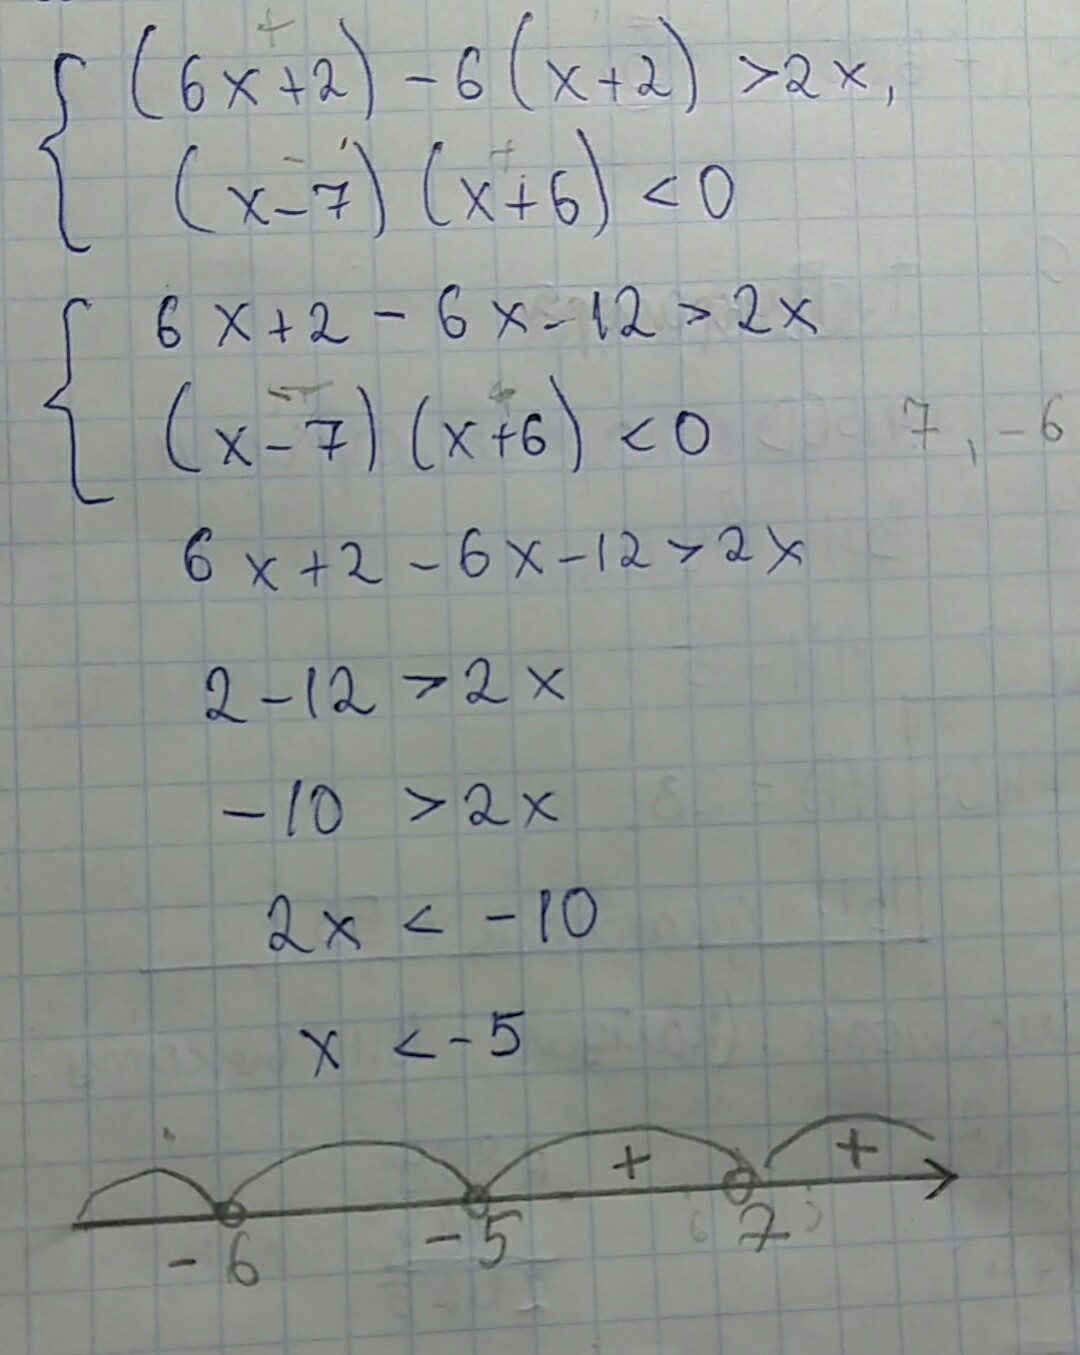 +
{ (6x+2) - 6(x+2) > 2x,
- +
(x-7) (x+6) < 0
{ 6x+2 - 6x - 12 > 2x
- +
(x-7) (x+6) < 0 7, -6
6x+2 - 6x - 12 > 2x
2 - 12 > 2x
-10 > 2x
2x < -10
x < -5
+ +
-6 -5 7